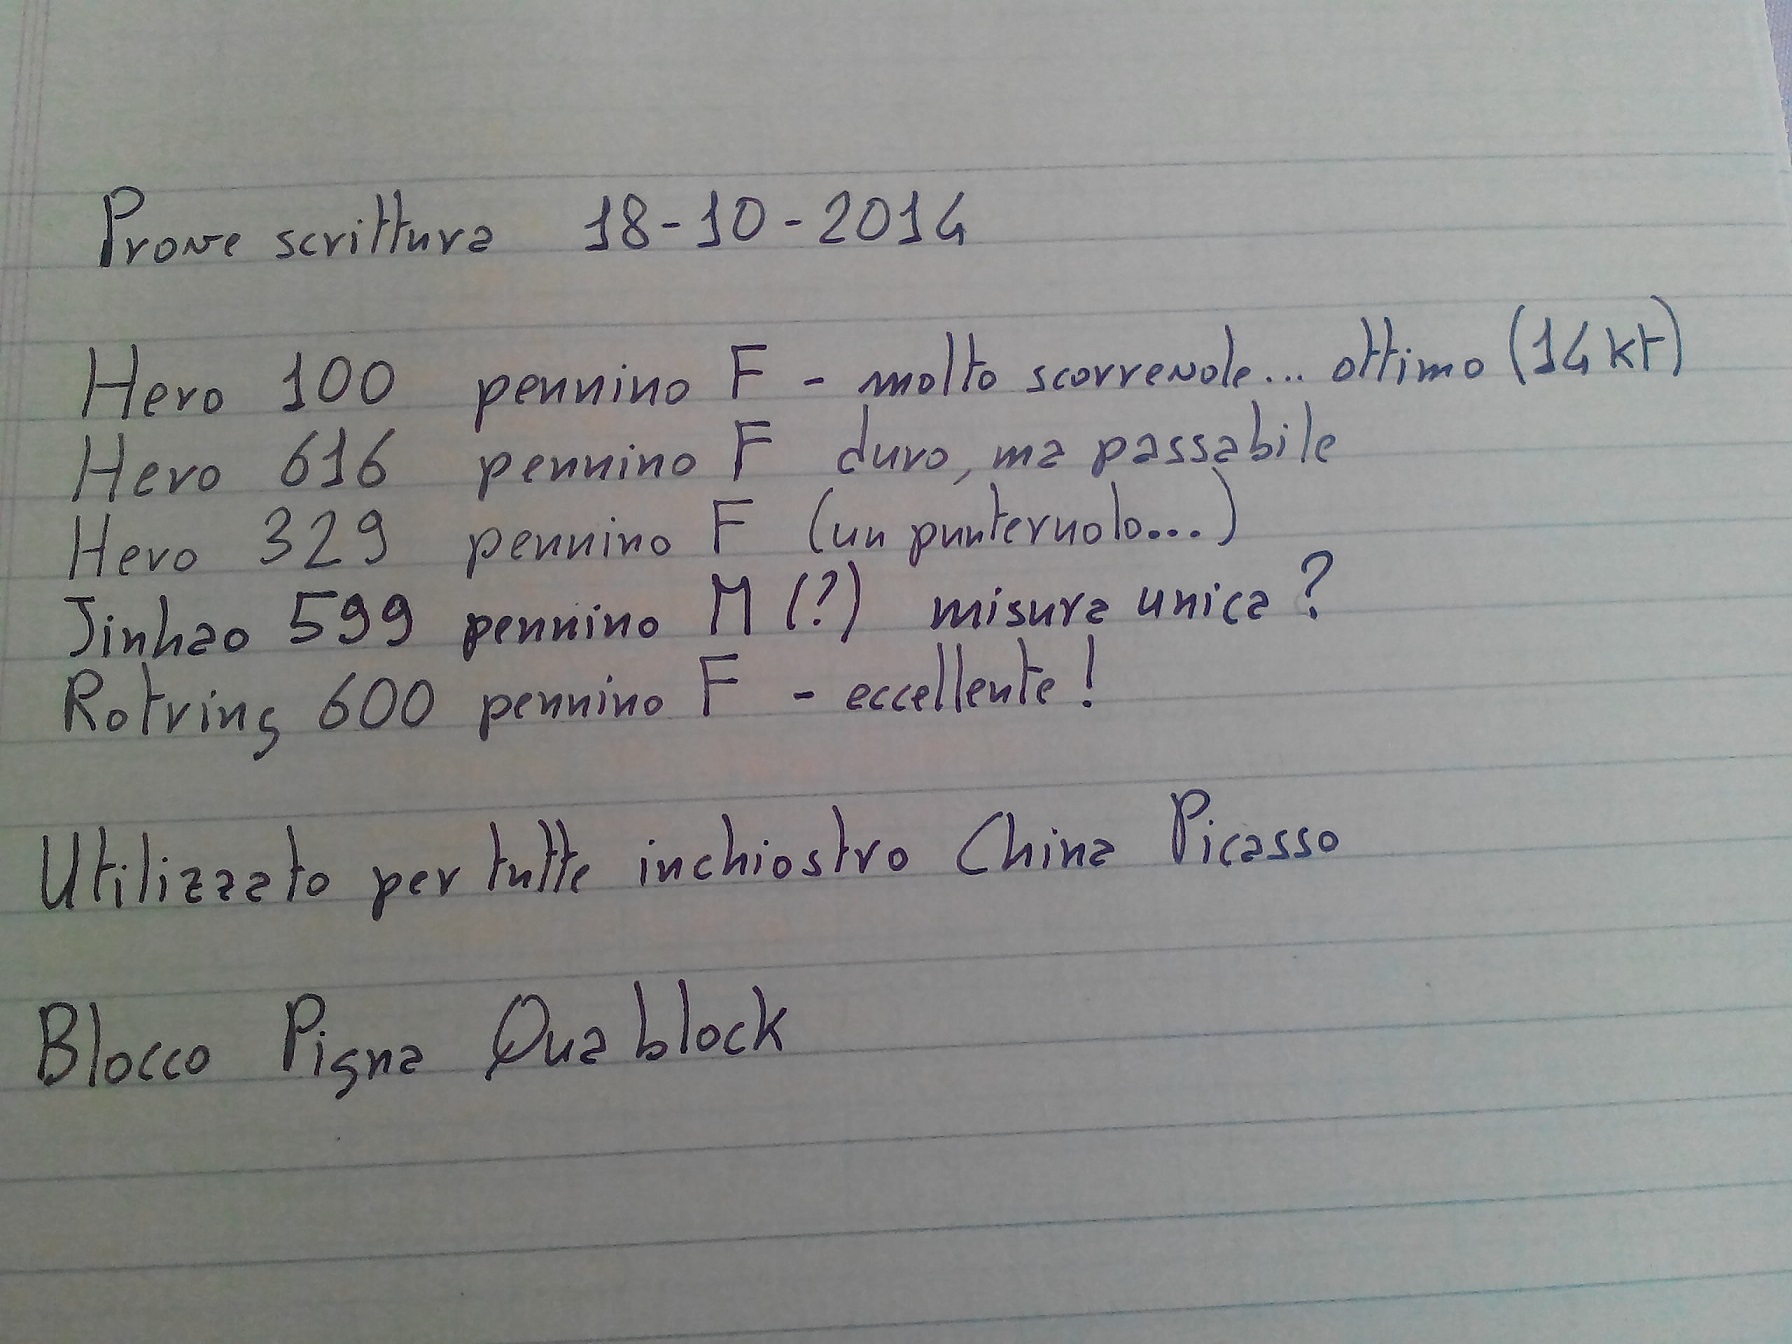 Prove scrittura 18-10-2014
Hero 100 pennino F - molto scorrevole... ottimo (14kt)
Hero 616 pennino F duro, ma passabile
Hero 329 pennino F (un punteruolo...)
Jinhao 599 pennino M (?) misura unica?
Rotring 600 pennino F - eccellente!
Utilizzato per tutte inchiostro China Picasso
Blocco Pigna Quablock